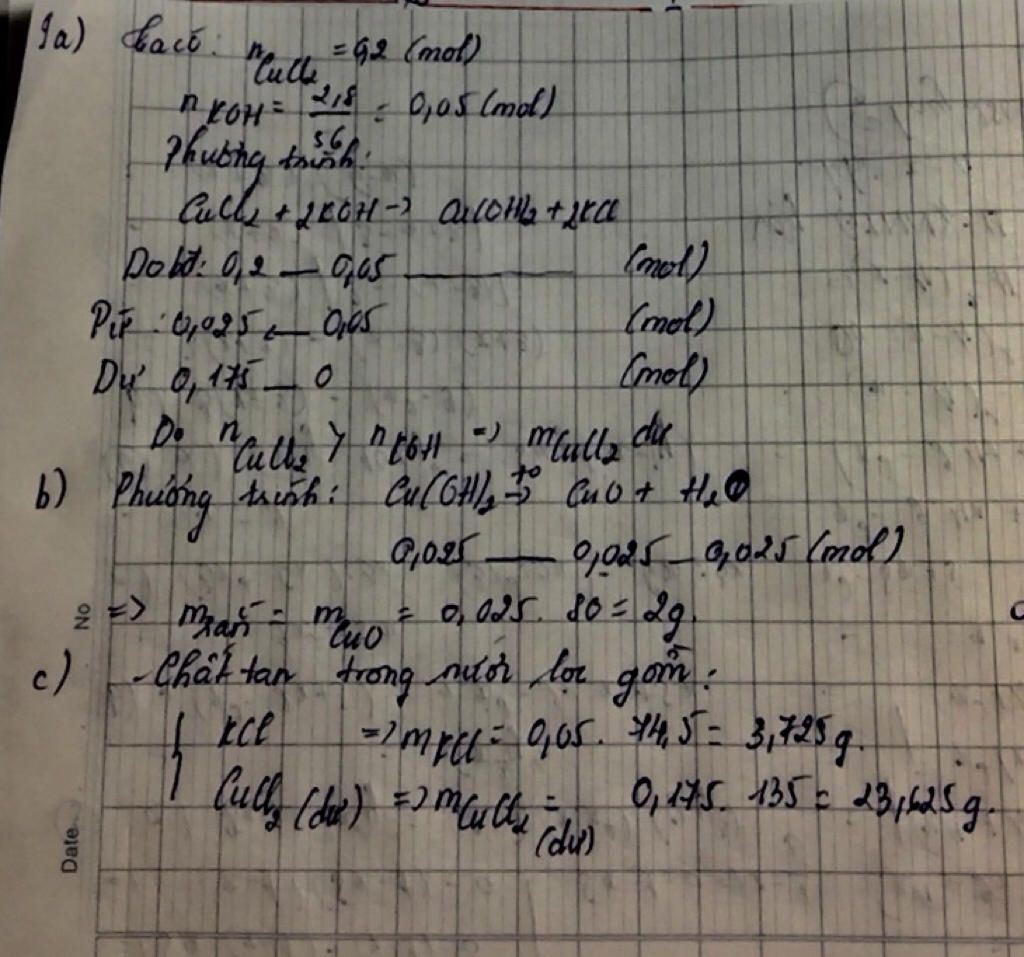 1a) Ta có: nCuCl₂ = 0,2 (mol)
nKOH = 2,8/56 = 0,05 (mol)
Phương trình:
CuCl₂ + 2KOH → Cu(OH)₂ + 2KCl
Do bđ: 0,2 — 0,05 ——— (mol)
Pứ : 0,025 ← 0,05 (mol)
Dư 0,175 — 0 (mol)
Do nCuCl₂ > nKOH => mCuCl₂ dư
b) Phương trình: Cu(OH)₂ →t⁰ CuO + H₂O
0,025 — 0,025 — 0,025 (mol)
=> mrắn = mCuO = 0,025. 80 = 2g.
c) - Chất tan trong nước lọc gồm:
{ KCl => mKCl = 0,05. 74,5 = 3,725g.
CuCl₂ (dư) => mCuCl₂ (dư) = 0,175. 135 = 23,625g.
No
Date